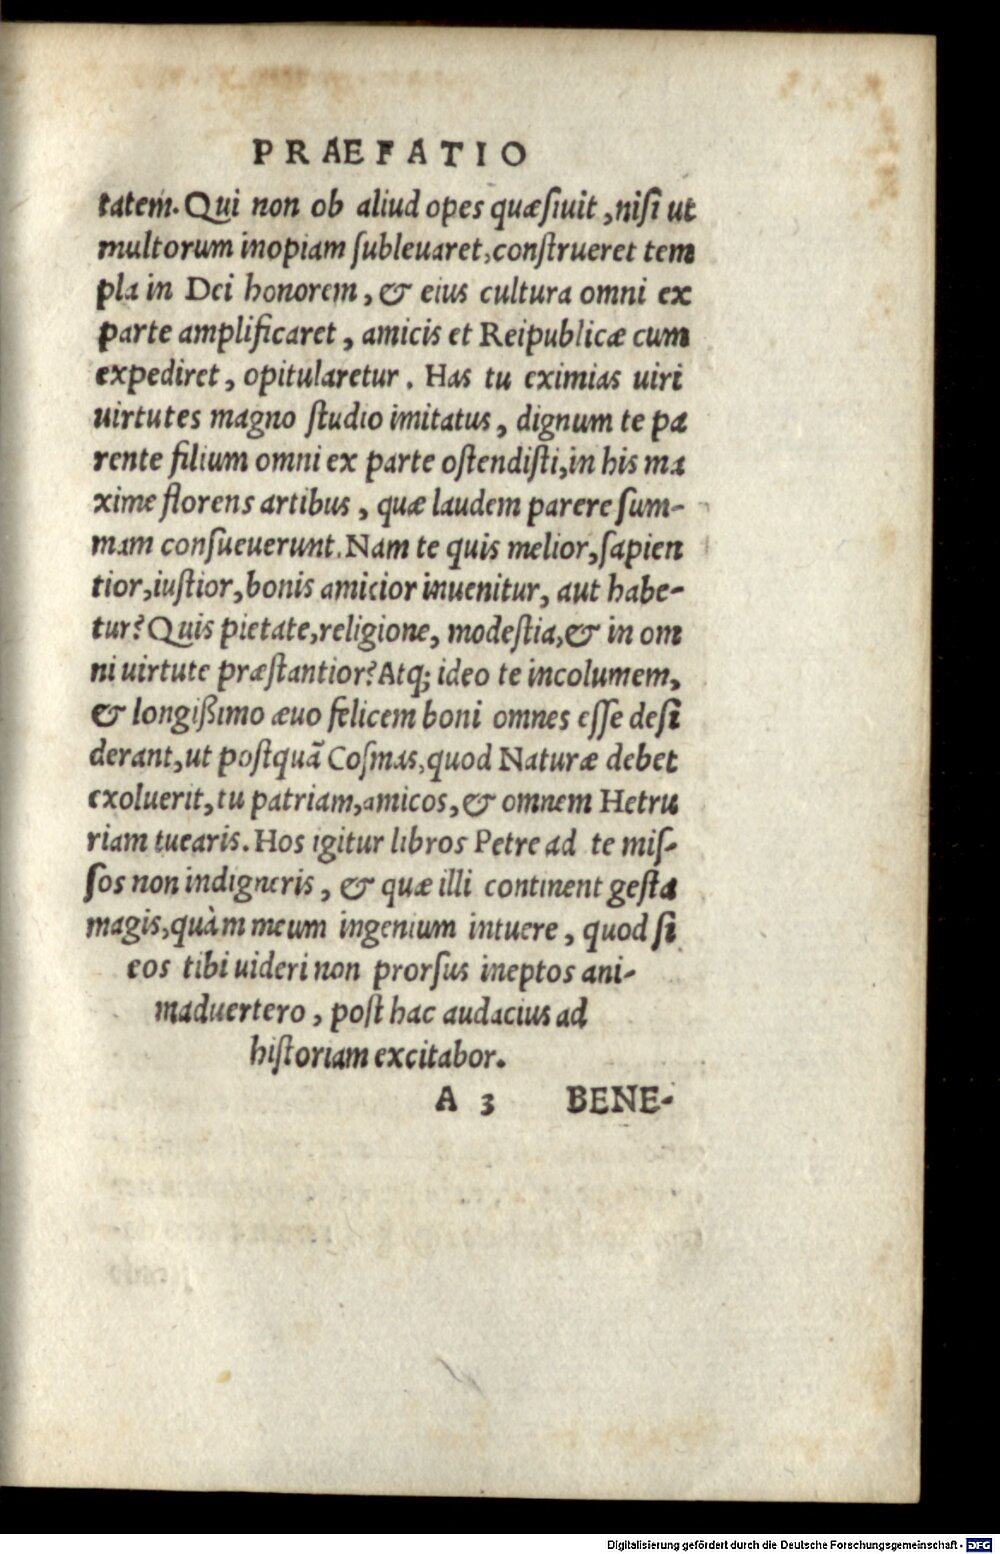 PRAEFATIO
tatem. Qui non ob aliud opes quæſiuit, niſi ut
multorum inopiam ſubleuaret, conſtrueret tem
pla in Dei honorem, & eius cultura omni ex
parte amplificaret, amicis et Reipublicæ cum
expediret, opitularetur. Has tu eximias uiri
uirtutes magno ſtudio imitatus, dignum te pa
rente filium omni ex parte oſtendiſti, in his ma
xime florens artibus, quæ laudem parere ſum-
mam conſueuerunt. Nam te quis melior, ſapien
tior, iuſtior, bonis amicior inuenitur, aut habe-
tur? Quis pietate, religione, modeſtia, & in om
ni uirtute præſtantior? Atq; ideo te incolumem,
& longißimo æuo felicem boni omnes eſſe deſi
derant, ut poſtquã Coſmas, quod Naturæ debet
exoluerit, tu patriam, amicos, & omnem Hetru
riam tuearis. Hos igitur libros Petre ad te miſ-
ſos non indigneris, & quæ illi continent geſta
magis, quàm meum ingenium intuere, quod ſi
eos tibi uideri non prorſus ineptos ani-
maduertero, poſt hac audacius ad
hiſtoriam excitabor.
A 3 BENE-
Digitalisierung gefördert durch die Deutsche Forschungsgemeinschaft - DFG